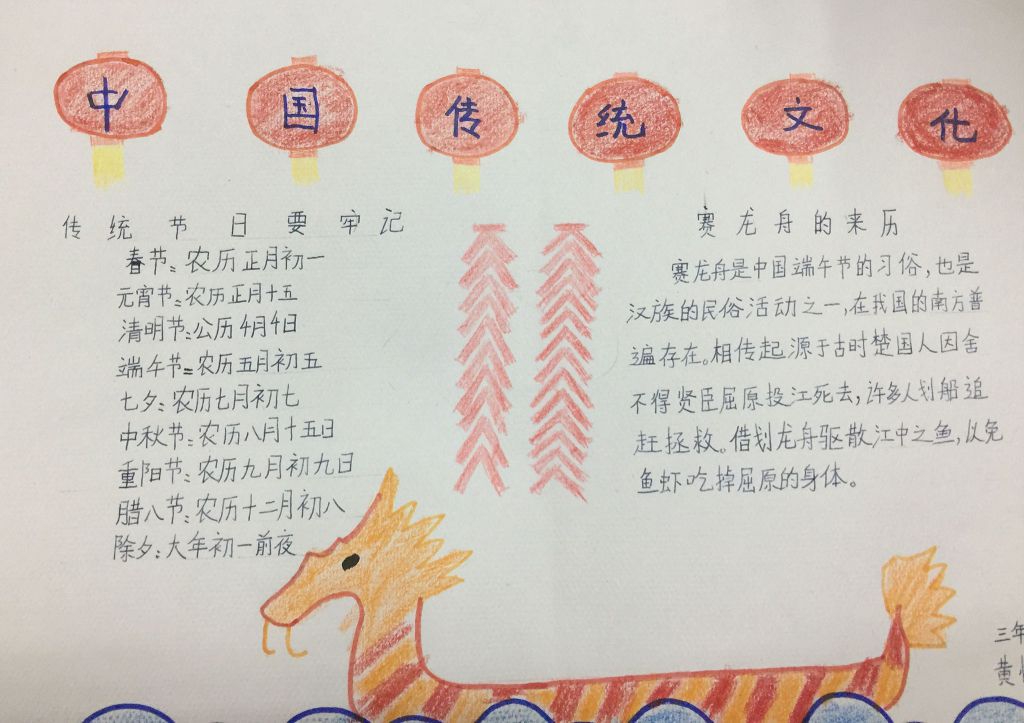 中国传统文化
传统节日要牢记
春节:农历正月初一
元宵节:农历正月十五
清明节:公历4月4日
端午节=农历五月初五
七夕:农历七月初七
中秋节:农历八月十五日
重阳节:农历九月初九日
腊八节:农历十二月初八
除夕:大年初一前夜
赛龙舟的来历
赛龙舟是中国端午节的习俗,也是
汉族的民俗活动之一,在我国的南方普
遍存在。相传起源于古时楚国人因舍
不得贤臣屈原投江死去,许多人划船追
赶拯救。借划龙舟驱散江中之鱼,以免
鱼虾吃掉屈原的身体。
三年
黄